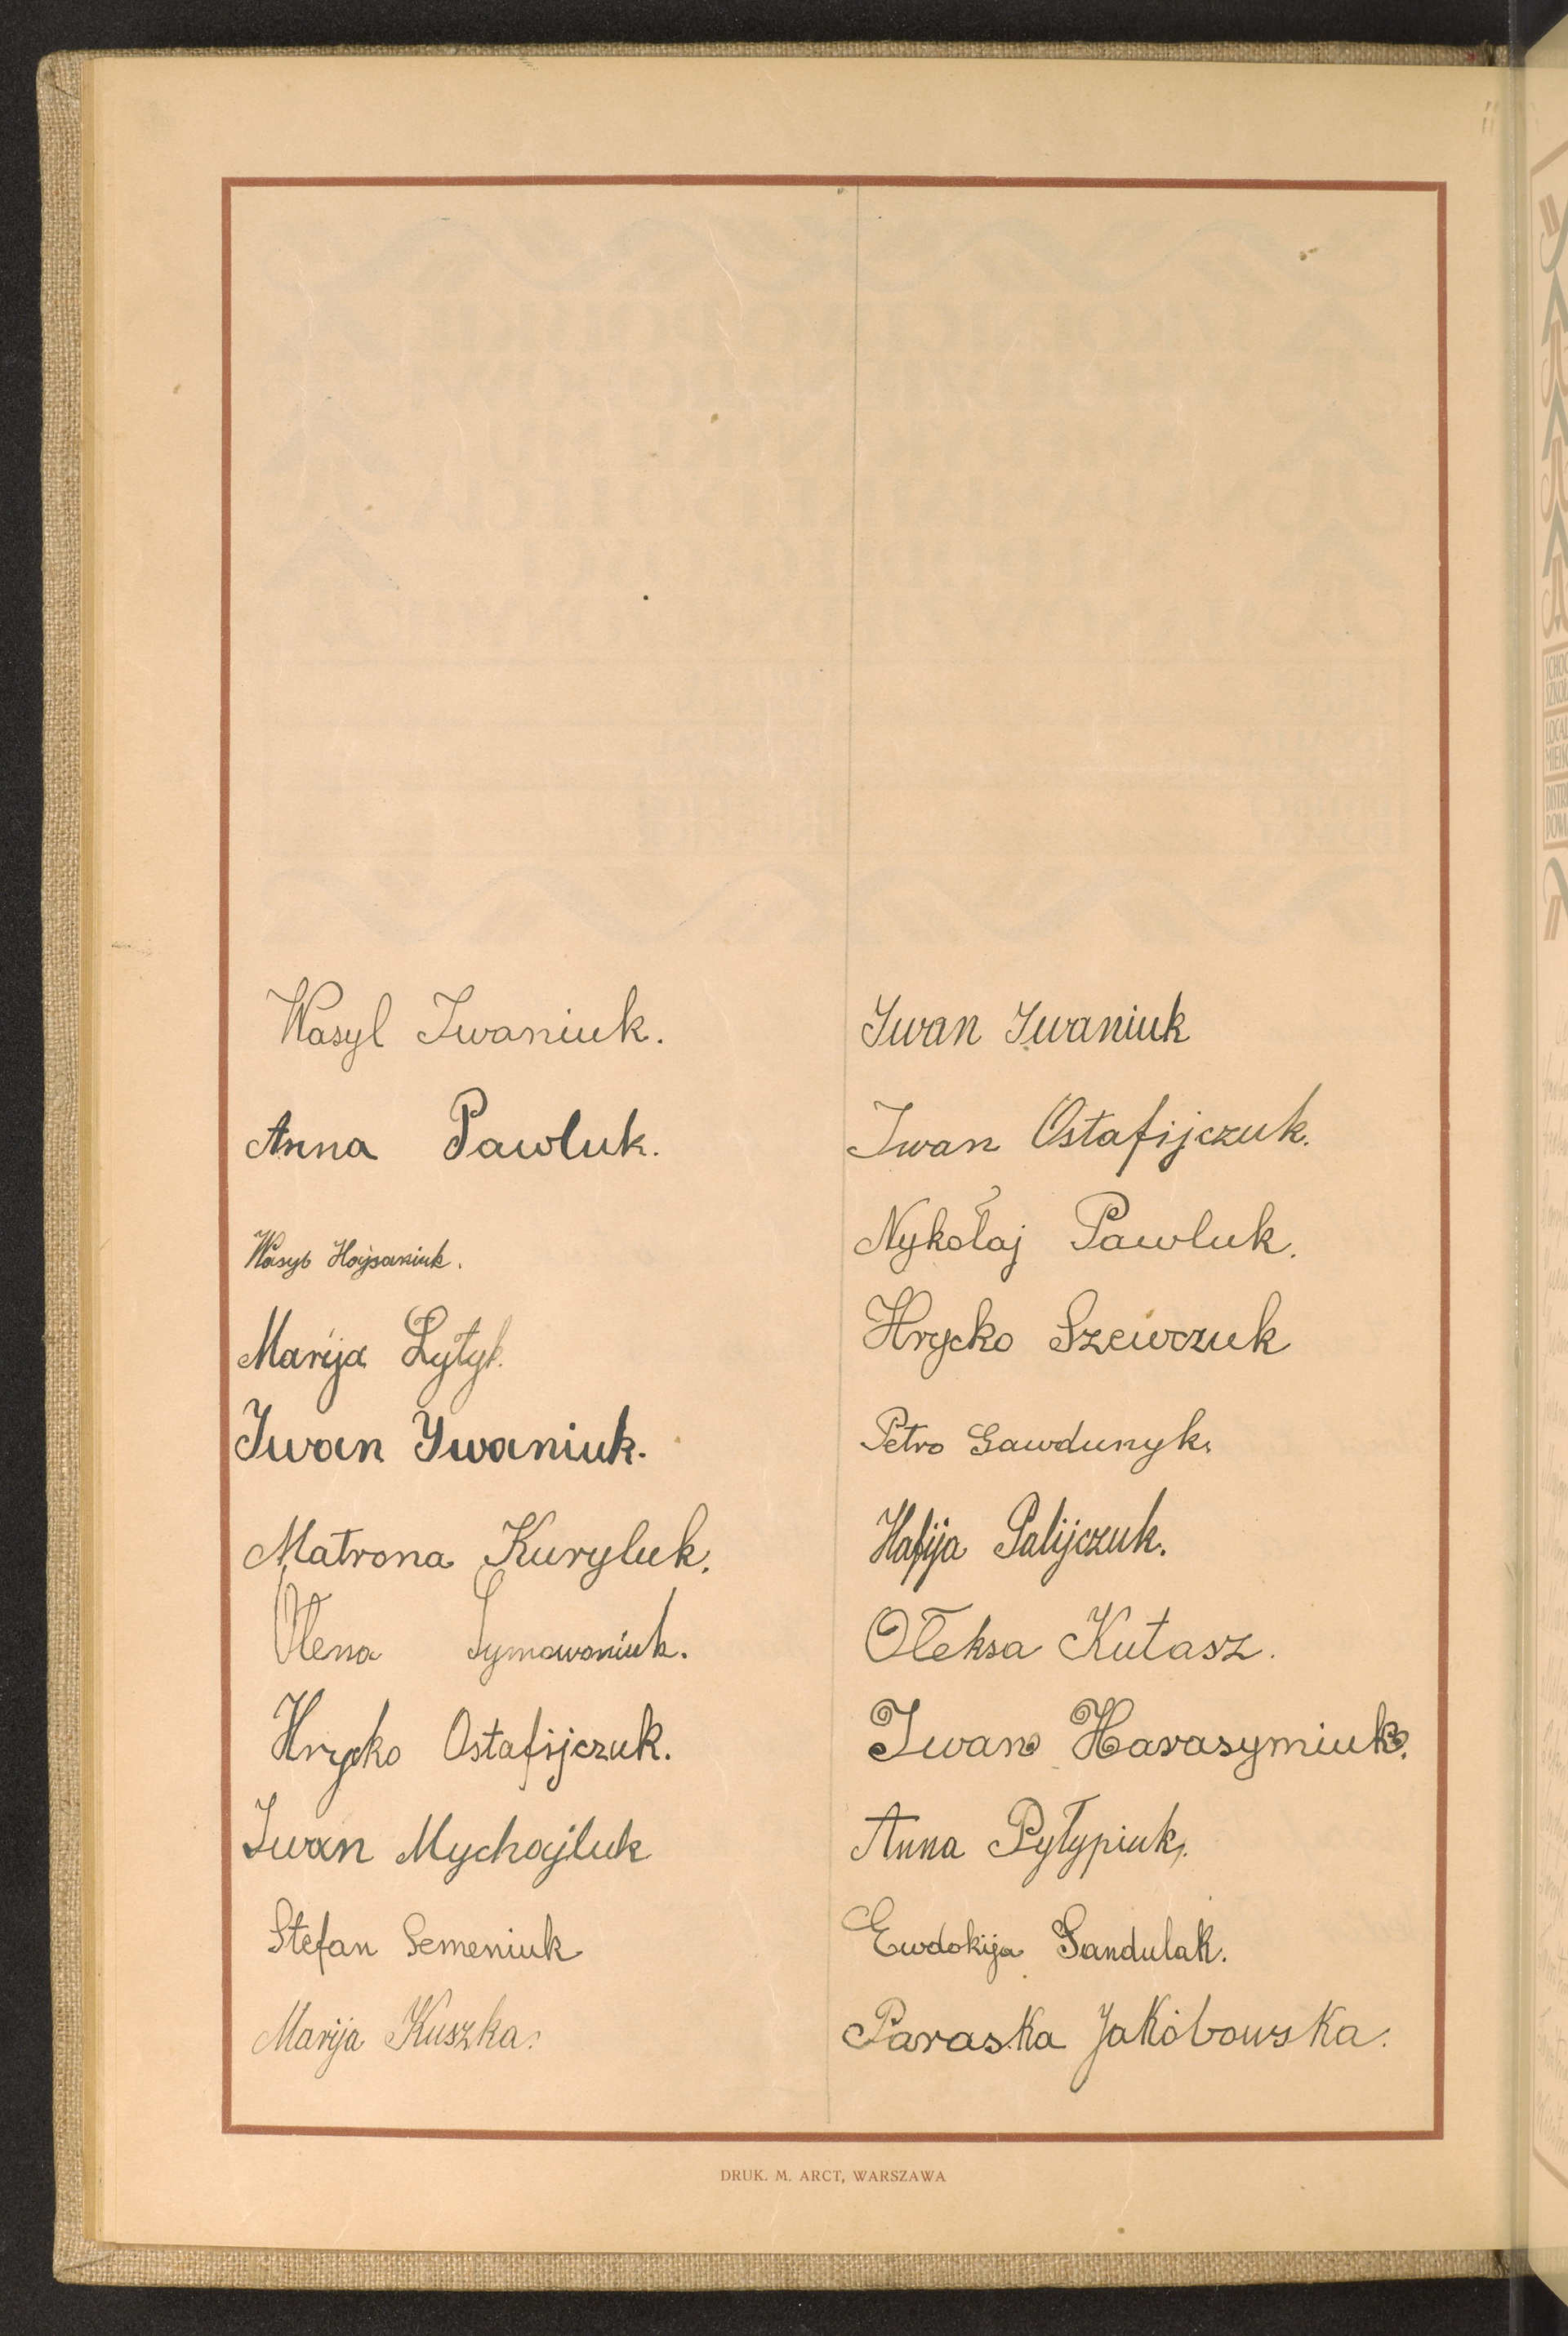 Wasyl Iwaniuk.
Anna Pawluk.
Wasyb Hojsaniuk.
Marija Łytyk.
Iwan Ywaniuk.
Matrona Kuryluk.
Ołena Symawoniuk.
Hrycko Ostafijczuk.
Iwan Mychajluk
Stefan Semeniuk
Marija Kuszka.
Iwan Iwaniuk
Iwan Ostafijczuk.
Nykołaj Pawluk.
Hrycko Szewczuk
Petro Gawdunyk.
Hafija Palijczuk.
Ołeksa Kutasz.
Iwan Harasymiuk.
Anna Pyłypiuk.
Ewdokija Sandulak.
Paraska Jakóbowska.
DRUK. M. ARCT, WARSZAWA